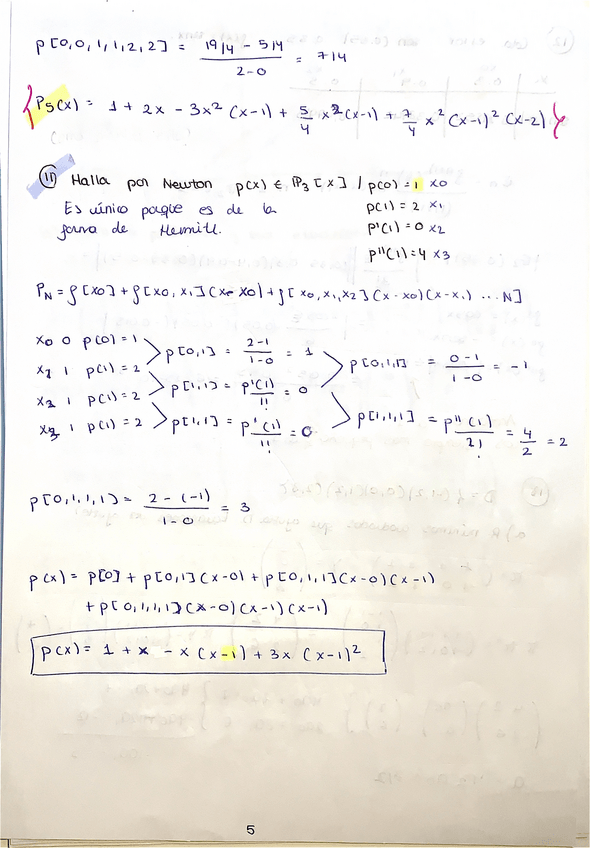 p[0,0,1,1,2,2] = (19/4 - 5/4)/(2-0) = 7/4
P5(x) = 1 + 2x - 3x² (x-1) + 5/4 x² (x-1) + 7/4 x² (x-1)² (x-2)
11 Halla por Newton p(x) ∈ P3[x] / p(0) = 1 x0
Es único porque es de la p(1) = 2 x1
forma de Hermite. p'(1) = 0 x2
p''(1) = 4 x3
PN = f[x0] + f[x0,x1](x-x0) + f[x0,x1,x2](x-x0)(x-x1) ... N]
x0 0 p(0) = 1
p[0,1] = (2-1)/(1-0) = 1
x1 1 p(1) = 2
p[0,1,1] = (0-1)/(1-0) = -1
p[1,1] = p'(1)/1! = 0
x2 1 p(1) = 2
p[1,1,1] = p''(1)/2! = 4/2 = 2
p[1,1] = p'(1)/1! = 0
x3 1 p(1) = 2
p[0,1,1,1] = (2-(-1))/(1-0) = 3
p(x) = p[0] + p[0,1](x-0) + p[0,1,1](x-0)(x-1)
+ p[0,1,1,1](x-0)(x-1)(x-1)
p(x) = 1 + x - x (x-1) + 3x (x-1)²
5